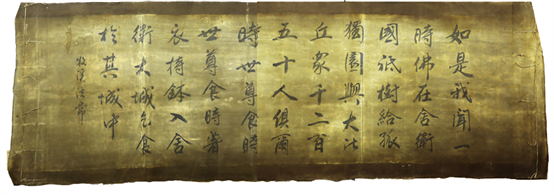 如是我聞一
時佛在舍衛
國祇樹給孤
獨園與大比
丘衆千二百
五十人俱爾
時世尊食時
世尊食時著
衣持鉢入舍
衛大城乞食
於其城中
牧溪法常